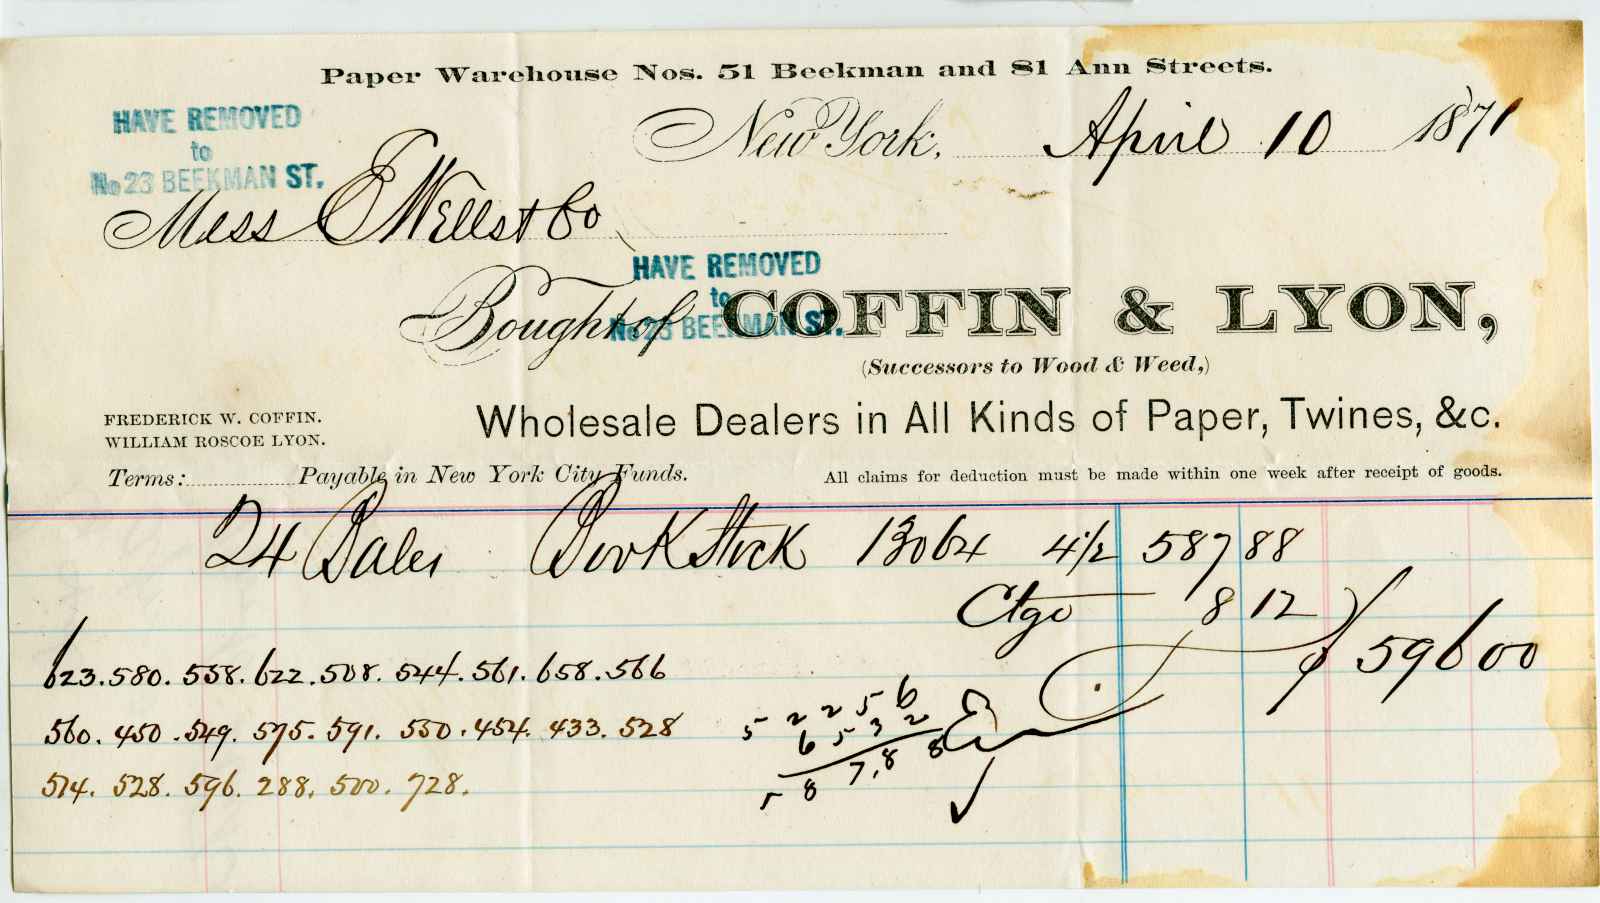 Paper Warehouse Nos. 51 Beekman and 81 Ann Streets.
HAVE REMOVED
to
No 23 BEEKMAN ST.
New York, April 10 1871
Mess E Wells & Co
HAVE REMOVED
to
No 23 BEEKMAN ST.
Bought of COFFIN & LYON,
(Successors to Wood & Weed,)
FREDERICK W. COFFIN.
WILLIAM ROSCOE LYON.
Wholesale Dealers in All Kinds of Paper, Twines, &c.
Terms: Payable in New York City Funds. All claims for deduction must be made within one week after receipt of goods.
24 Bales Book Stock 13064 4 1/2 587 88
Ctge 8 12
$ 596 00
623. 580. 558. 622. 508. 544. 561. 658. 566
560. 450. 549. 575. 591. 550. 454. 433. 528
514. 528. 596. 288. 500. 728.
5 2 2 5 6
6 5 3 2
5 8 7, 8 8